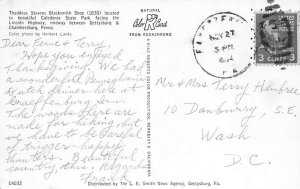 Thaddeus Stevens Blacksmith Shop (1830) located
in beautiful Caledonia State Park facing the
Lincoln Highway, midway between Gettysburg &
Chambersburg, Penna.
Color photo by Herbert Lanks
Dear Ferne & Terry,
Hope you enjoyed
had
a wonderful Pennsylvania
Dutch dinner here at
Graeffenburg Inn.
The woods there are
made for hiking but
we due to be careful
of trigger-happy
hunters. Beautiful
country, this. Regards
Frank
C4032
Distributed by The L. E. Smith News Agency, Gettysburg, Pa.
NATURAL
Color Card
FROM KODACHROME
NOV 27
3 PM
PA.
3 CENTS 3
Mr & Mrs Terry
10 Danbury, S.E.
Wash
D.C.